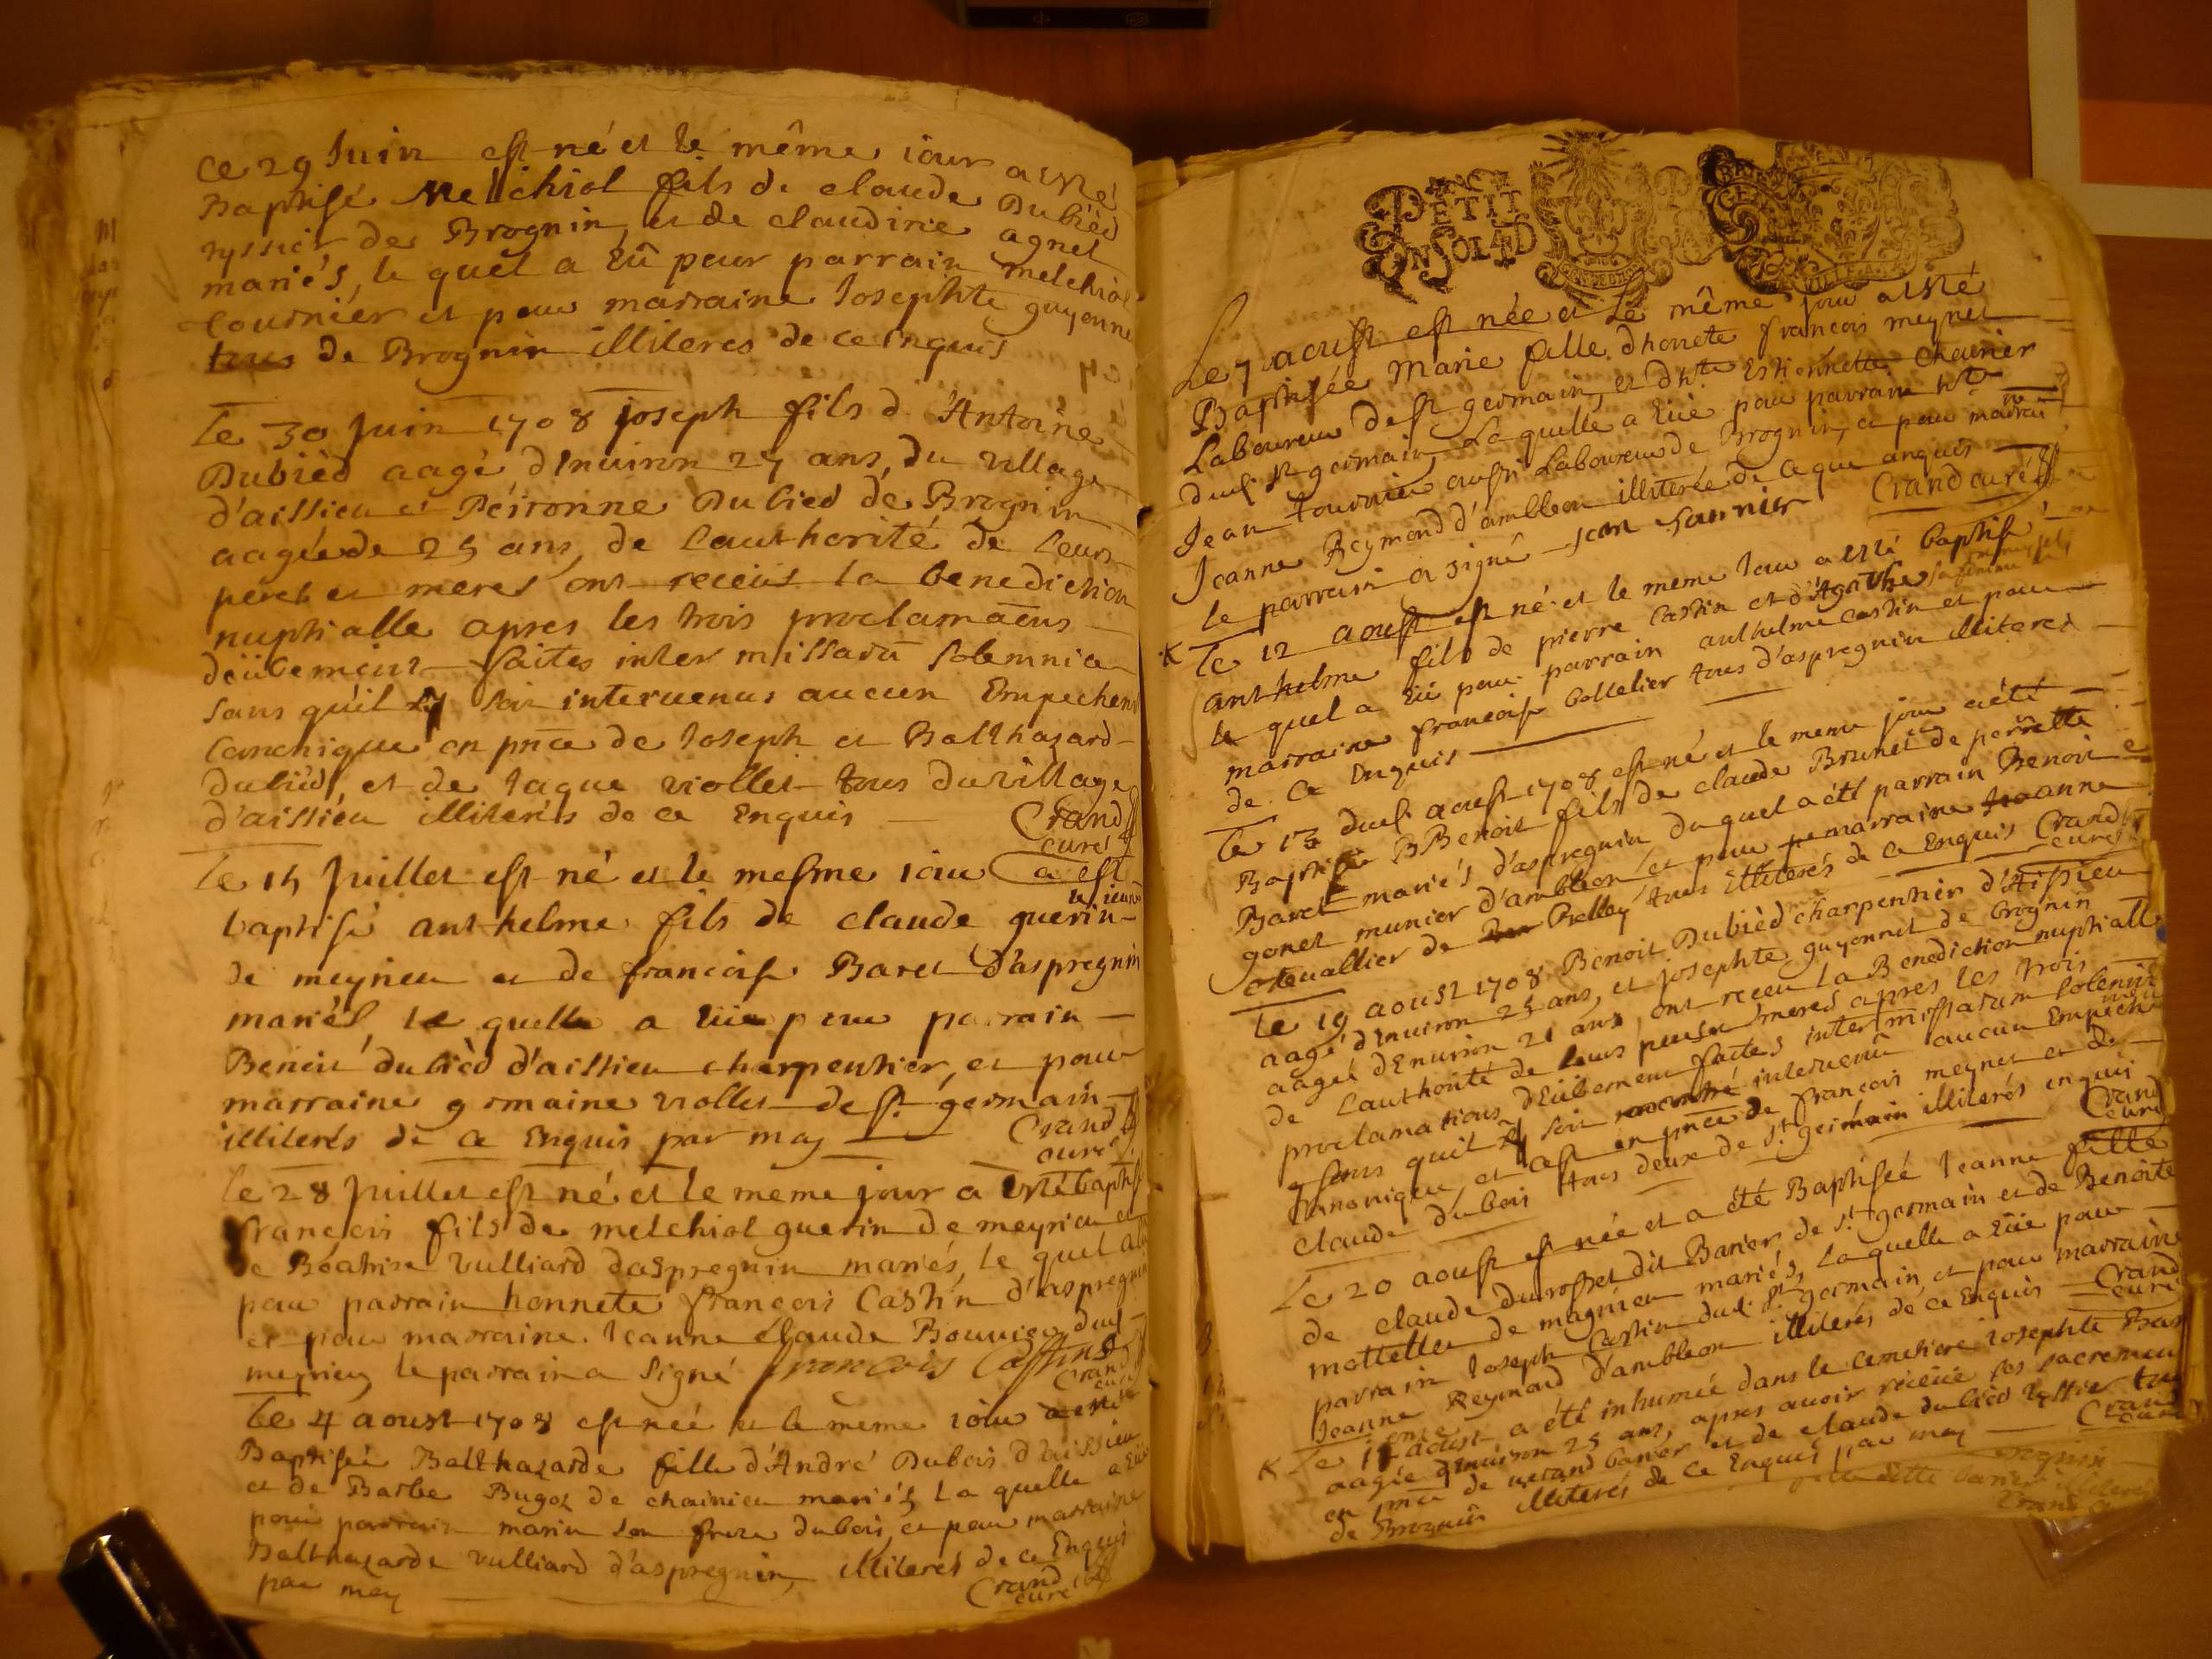 Ce 29 Juin est né et le même iour a esté
Baptisé Melchiol fils de claude Dubiéd
tyssier de Brognin, et de claudine agnel
mariés, le quel a Eû pour parrain melchiol
tournier et pour marraine Josephte guyonne
tous de Brognin illiteres de ce enquis
Le 30 Juin 1708 joseph fils d'Antoine
Dubièd aagé d'Enuiron 27 ans, du village
d'aissieu et Péironne Dubied de Brognin
aagée de 25 ans, de l'authorité de leurs
peres et meres ont receus la benediction
nuptialle apres les trois proclamaons
deübement faites inter missarū solemnia
sans qu'il y soit interuenus aucun Empechemt
Canonique en pnce de Joseph et Balthazard
dubièd, et de Jaque viollet tous du village
d'aissieu illiterés de ce Enquis
Crand
curé
Le 15 Juillet est né et le mesme iour a est
le ieune
baptisé anthelme fils de claude guerin
de meyrieu et de francoise Baret d'aspregnin
mariés, le quelle a Eüe pour parrain
Benoit dubièd d'aissieu charpentier, et pour
marraine germaine viollet de st germain
illiterés de ce Enquis par moy
Crand
curé
le 28 Juillet est né et le meme jour a esté baptisé
francois fils de melchiol guerin de meyrieu et
de Béatrise vulliard daspregnin mariés, le quel a
pour parrain honnete francois Castin d'aspregnin
et pour marraine Jeanne Claude Bouvier dud
meyrieu le parrain a signé francois Castin
Crand
curé
Le 4 aoust 1708 est née et le meme iour a esté
Baptisée Balthazarde fille d'André Dubois d'aissieu
et de Barbe Bugoz de chainieu mariés, la quelle a Eüe
pour parrain marin son frere dubois, et pour marraine
Balthazarde vulliard d'aspregnin, illiterés de ce Enquis
par moy
Crand
curé
PETIT
EN SOL 4 D
Le 7 aoust est née et le même jour a esté
Baptisée Marie fille d'honete francois meynet
Laboureur de st germain, et d'hte Estiennette Chavrier
dud. st germain, La quelle a Eüe pour parrain hte
Jean tournier aussi Laboureur de Brognin, et pour marrai
Jeanne Reymond d'ambleon illiterée de ce que anquis
le parrain a signé Jean tournier
Crand curé
Le 12 aoust est né et le meme iour a esté baptisé
anthelme fils de pierre Castin et d'Agathe sa femme
le quel a Eü pour parrain anthelme Castin et pour
marraine francoise bollelier tous d'aspregnin illiteres
de ce Enquis
Le 13 dud. aoust 1708 est né et le meme jour a été
Baptisé Benoit fils de claude Brunet de perrette
Baret mariés d'aspregnin du quel a été parrain Benoit
gonet munier d'ambleon et pour marraine Joanne
cheuallier de Prelley tous illiterés de ce Enquis Crand
curé
Le 19 aoust 1708 Benoit Dubièd charpentier d'Aissieu
aagé d'Enuiron 25 ans, et Josephte guyonnet de brognin
aagée d'Enuiron 21 ans, ont receu la Benediction nuptialle
de l'authorité de leurs peres et meres apres les trois
proclamations, deüebement faites inter missarum solemni
sans qu'il y soit interuenû aucun Empeche
Canonique, et cest en pnce de francois meynet et de
claude dubois tous deux de st germain illiterés enquis
Crand
curé
Le 20 aoust est née et a été Baptisée Jeanne fille
de claude durosset dit Banier de st germain et de Benoite
mottettes de magnieu mariés, La quelle a Eüe pour
parrain Joseph Castin dud. st germain, et pour marraine
Jeanne Reymond d'ambleon illiterés de ce Enquis
Crand
curé
Le aoust a été inhumée dans le cemetiere Josephte Ban
aagée d'Enuiron 25 ans, apres auoir receüe ses sacremen
en pnce de banier et de claude dubièd tyssier
de Brognin illiterés de ce Enquis par moy
Crand
curé